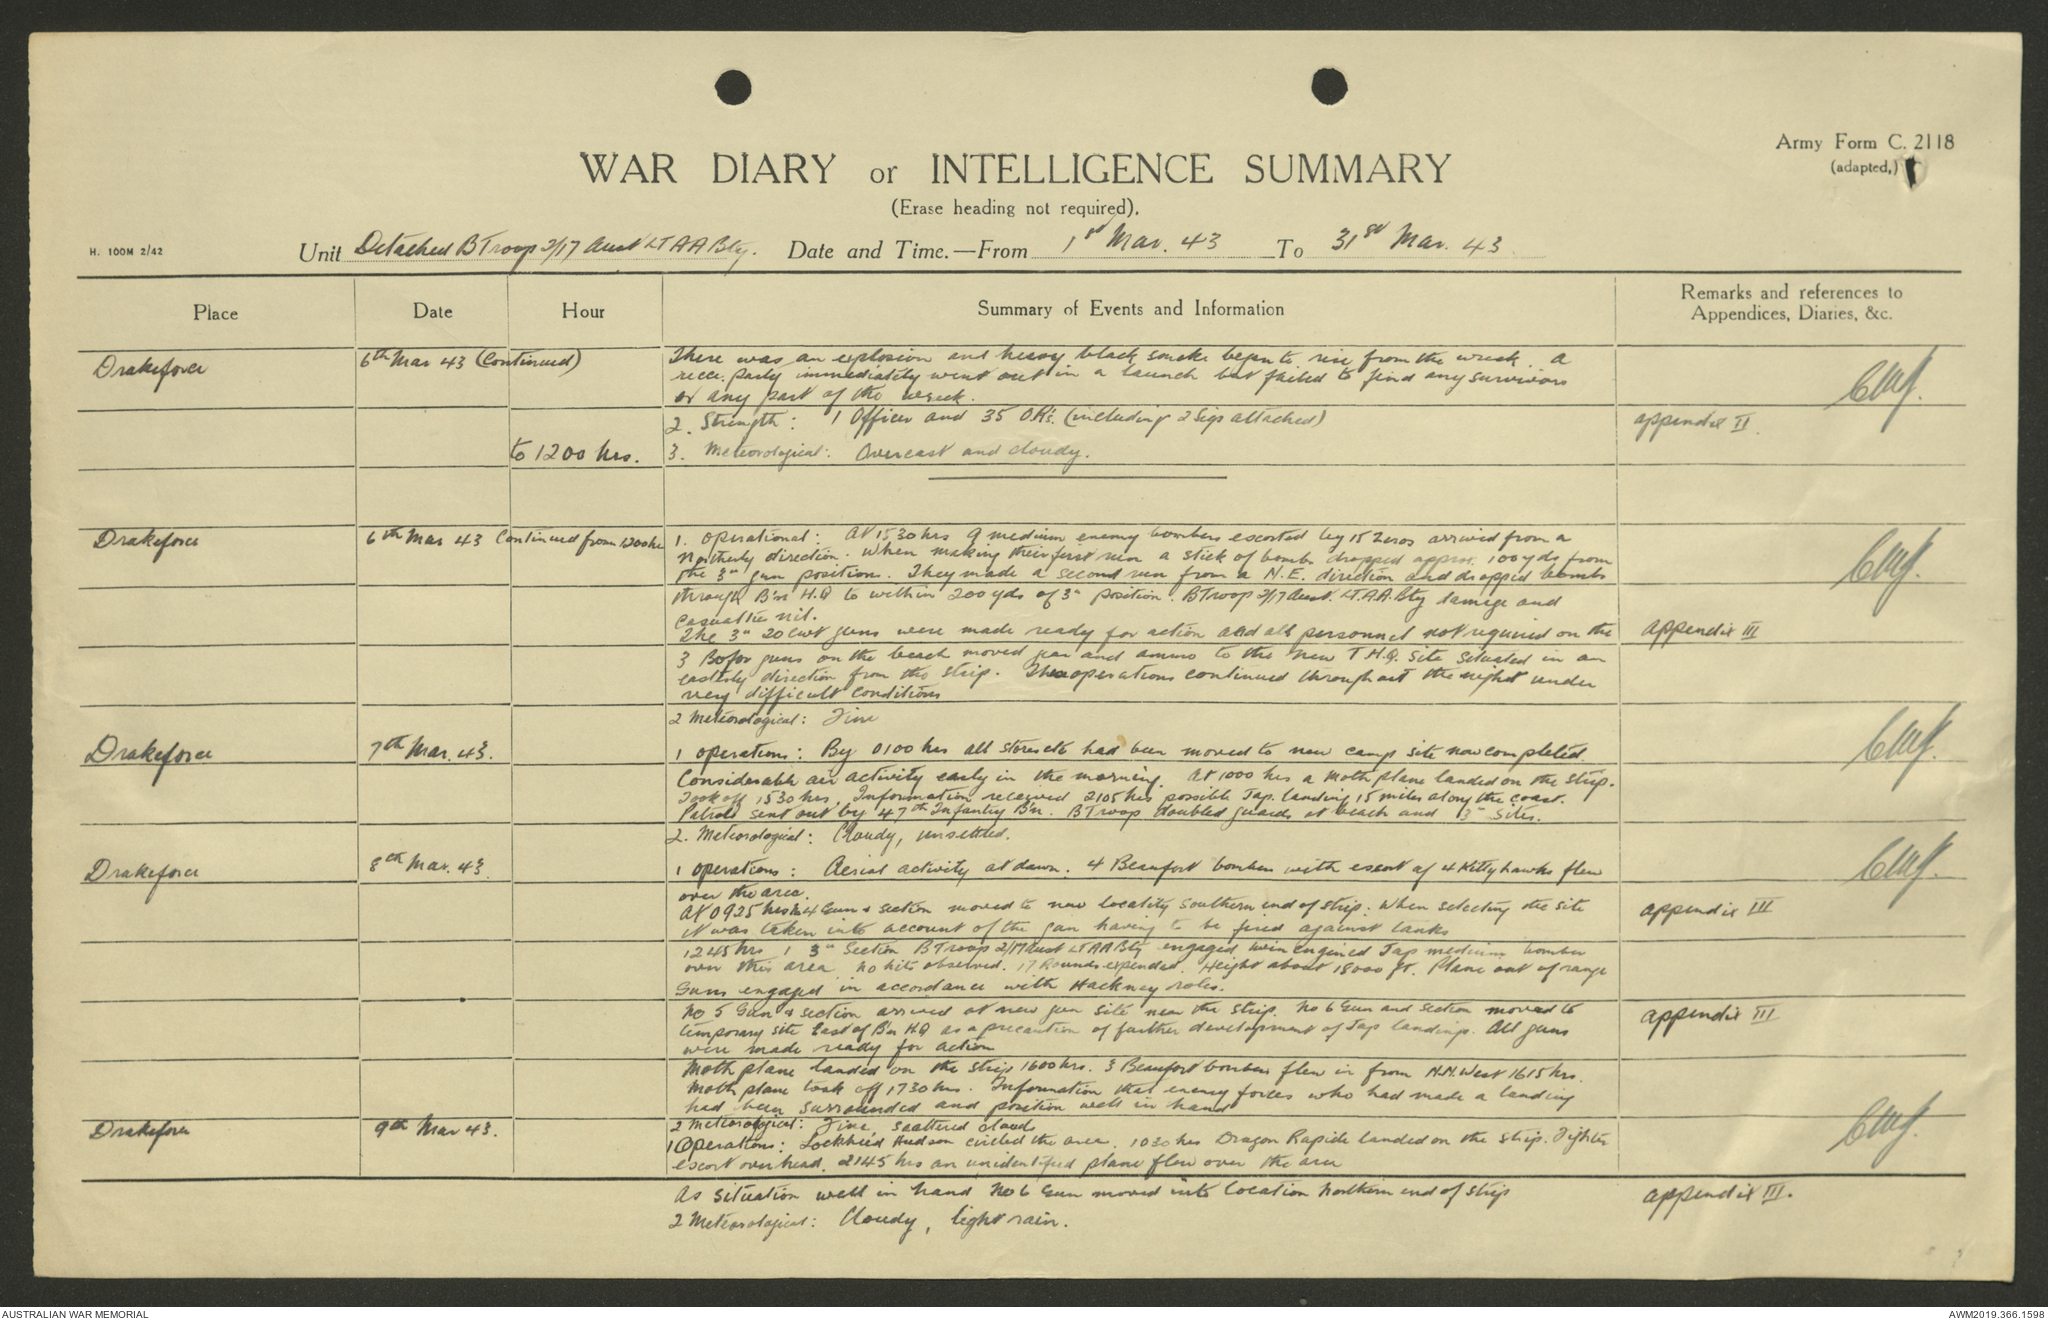 Army Form C. 2118
(adapted,)
WAR DIARY or INTELLIGENCE SUMMARY
(Erase heading not required).
H. 100M 2/42
Unit Detached B Troop 2/17 Aust LT AA Bty. Date and Time.—From 1st Mar. 43 To 31st Mar. 43
Place Date Hour Summary of Events and Information Remarks and references to
Appendices, Diaries, &c.
Drakeforce 6th Mar 43 (Continued) There was an explosion and heavy black smoke began to rise from the wreck. A
recce. party immediately went out in a launch but failed to find any survivors
or any part of the wreck.
2. Strength: 1 Officer and 35 O.R's. (including 2 Sigs attached) appendix II.
to 1200 hrs. 3. Meteorological: Overcast and cloudy.
Drakeforce 6th Mar 43 Continued from 1200 hr 1. Operational: At 1530 hrs 9 medium enemy bombers escorted by 15 Zeros arrived from a
Northerly direction. When making their first run a stick of bombs dropped approx. 100 yds from
the 3" gun positions. They made a second run from a N.E. direction and dropped bombs
through B'n H.Q to within 200 yds of 3" position. B Troop 2/17 Aust. LT. A.A. Bty damage and
casualties nil.
The 3" 20 cwt guns were made ready for action and all personnel not required on the appendix III
3 Bofor guns on the beach moved gear and ammo to the new T.H.Q. site situated in an
easterly direction from the strip. These operations continued throughout the night under
very difficult conditions
2 Meteorological: Fine
Drakeforce 7th Mar. 43. 1 Operations: By 0100 hrs all stores etc had been moved to new camp site now completed.
Considerable air activity early in the morning. At 1000 hrs a Moth plane landed on the strip.
Took off 1530 hrs. Information received 2105 hrs possible Jap. landing 15 miles along the coast.
Patrols sent out by 47th Infantry B'n. B Troop doubled guards at beach and 3" sites.
2. Meteorological: Cloudy, unsettled.
Drakeforce 8th Mar. 43. 1 Operations: Aerial activity at dawn. 4 Beaufort bombers with escort of 4 Kittyhawks flew
over the area.
At 0925 hrs No 4 Gun & section moved to new locality Southern end of strip. When selecting the site appendix III
it was taken into account of the gun having to be fired against tanks
1245 hrs 1 3" Section B Troop 2/17 Aust LT AA Bty engaged twin engined Jap medium bomber
over this area no hits observed. 17 Rounds expended. Height about 18000 ft. Plane out of range
Guns engaged in accordance with Hackney roles.
No 5 Gun & section arrived at new gun site near the strip. No 6 Gun and section moved to appendix III
temporary site East of B'n H.Q as a precaution of further development of Jap landings. All guns
were made ready for action
Moth plane landed on the strip 1600 hrs. 3 Beaufort bombers flew in from N.N. West 1615 hrs.
Moth plane took off 1730 hrs. Information that enemy forces who had made a landing
had been surrounded and position well in hand
2 Meteorological: Fine, scattered cloud
Drakeforce 9th Mar 43. 1 Operations: Lockheed Hudson circled the area. 1030 hrs Dragon Rapide landed on the strip. Fighter
escort overhead. 2145 hrs an unidentified plane flew over the area
As situation well in hand No 6 Gun moved into location Northern end of strip appendix III.
2 Meteorological: Cloudy, light rain.
AUSTRALIAN WAR MEMORIAL AWM2019.366.1598